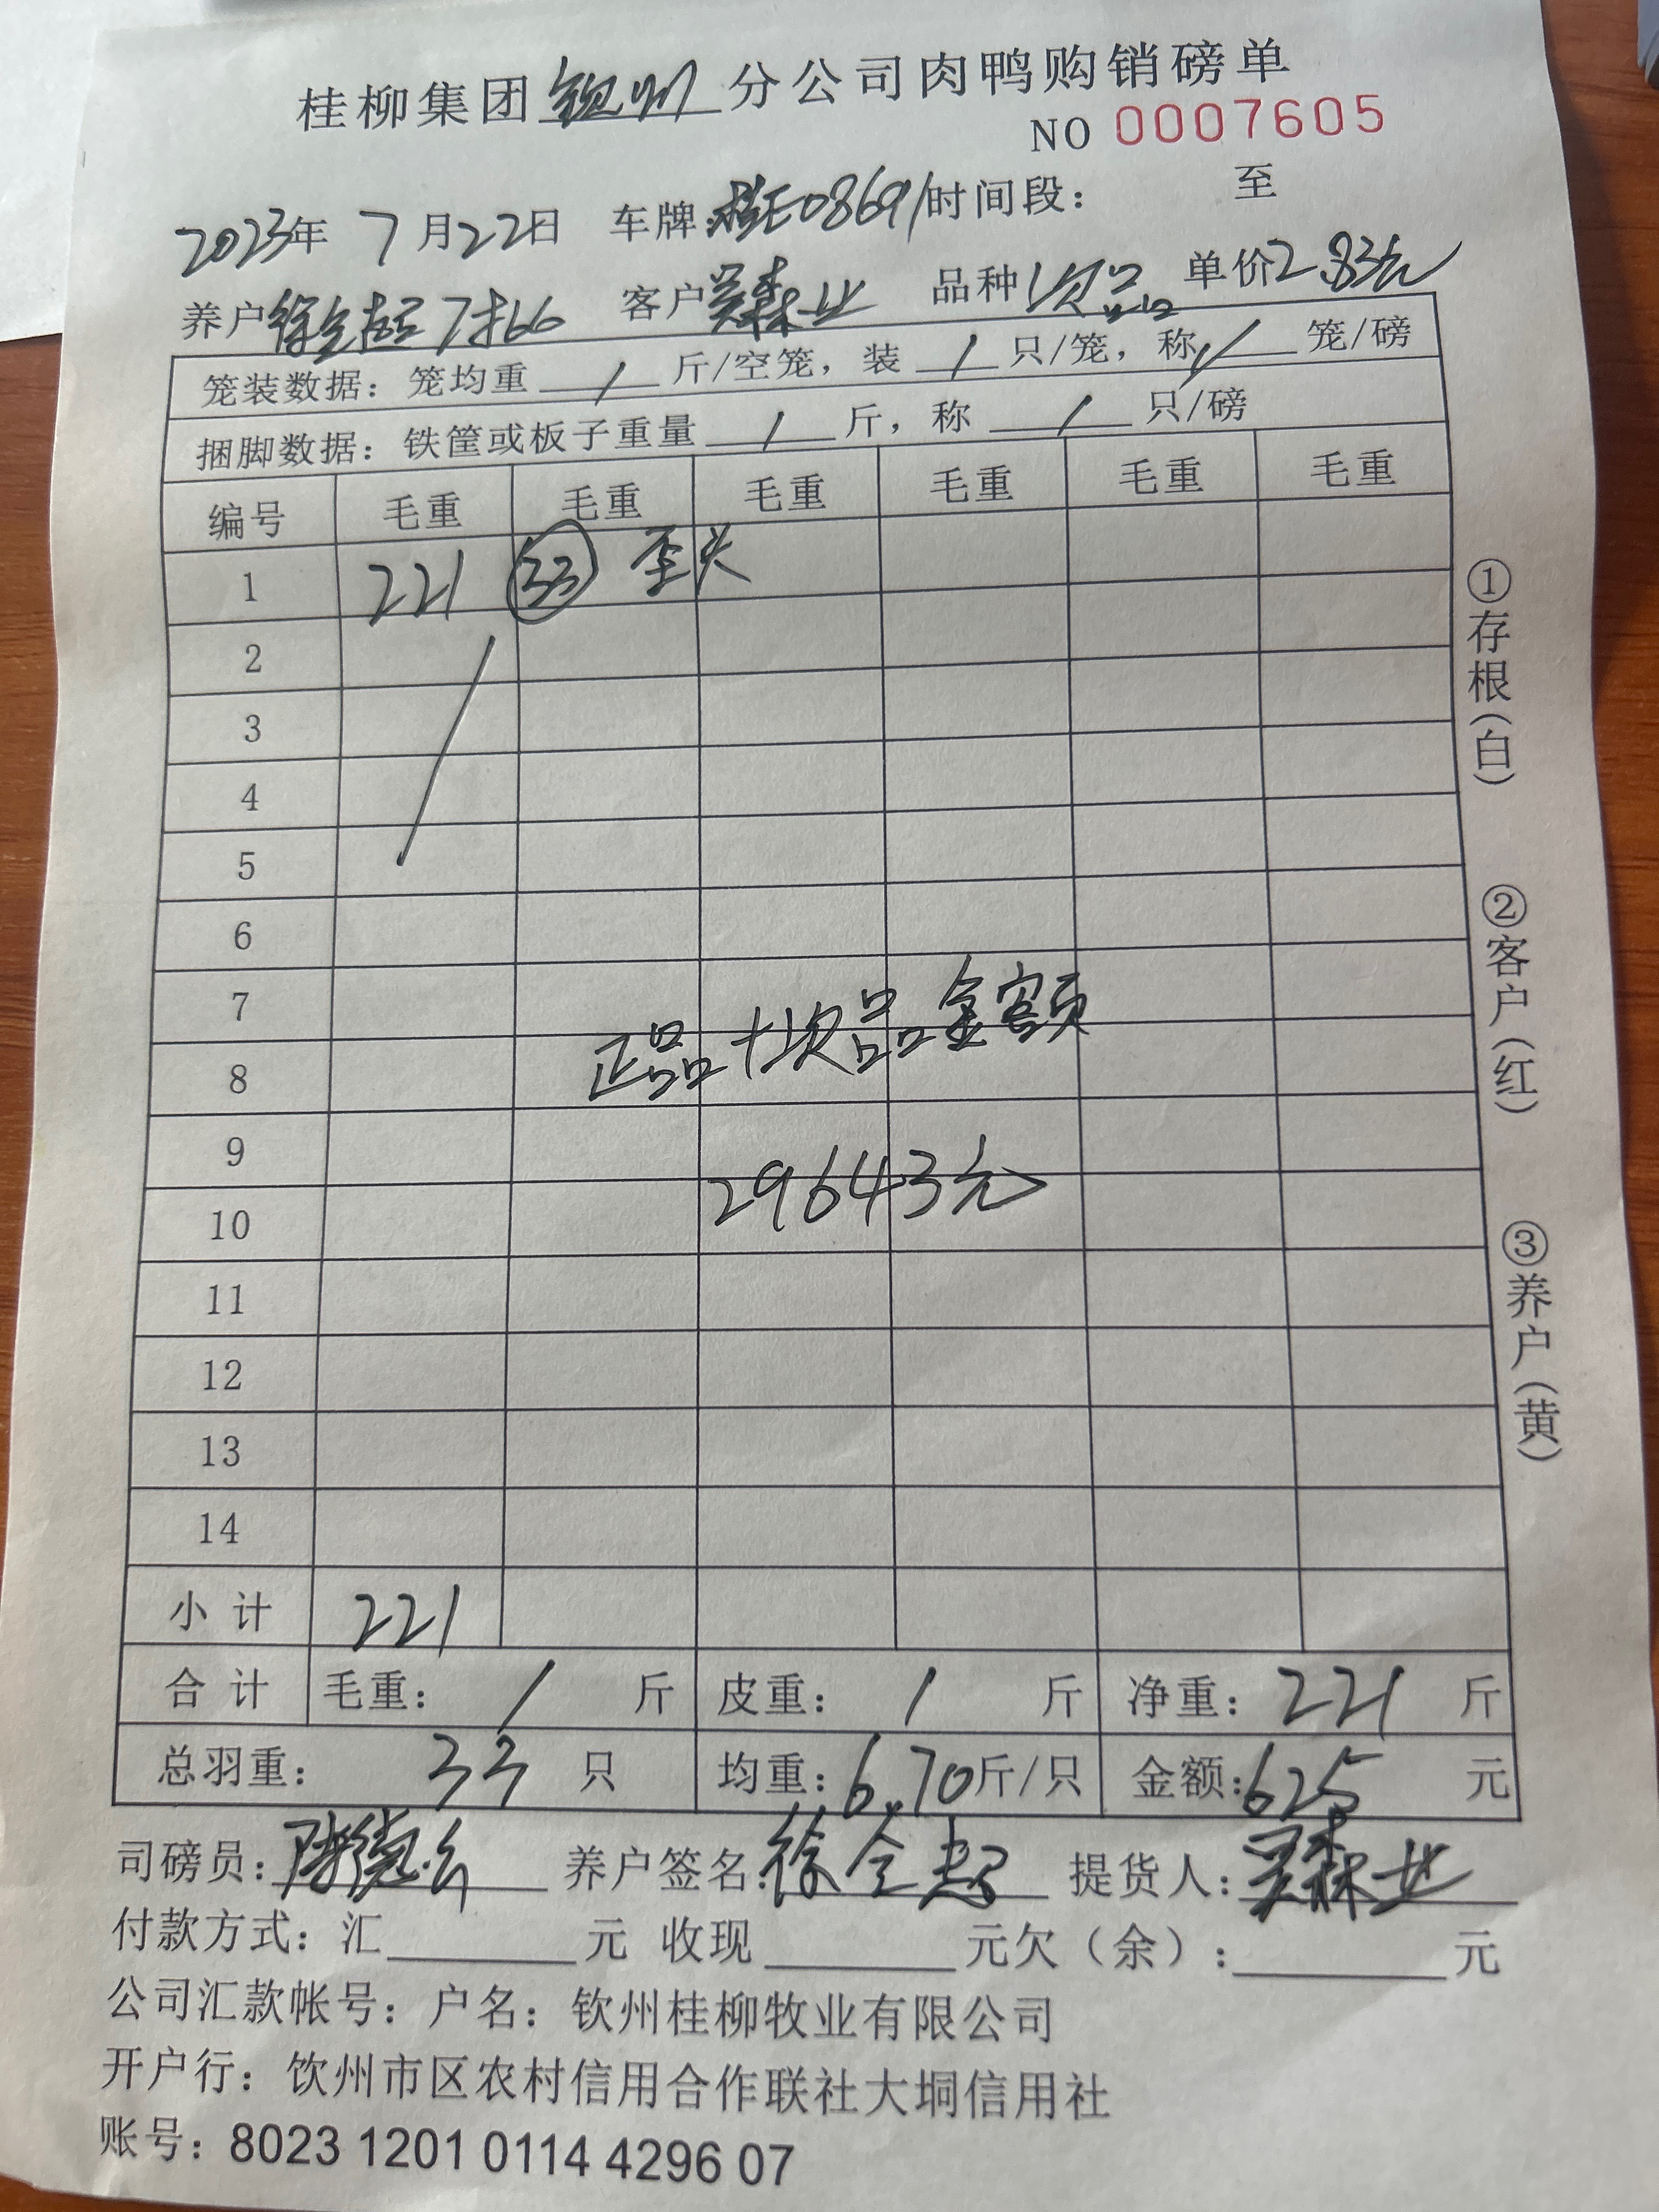 桂柳集团钦州分公司肉鸭购销磅单
NO 0007605
2023年 7月22日 车牌:桂E08691时间段: 至
养户徐全超 7#66 客户吴森业 品种次品 单价2.83元
笼装数据: 笼均重 / 斤/空笼, 装 / 只/笼, 称 / 笼/磅
捆脚数据: 铁筐或板子重量 / 斤, 称 / 只/磅
编号 毛重 毛重 毛重 毛重 毛重 毛重
1 221 33 歪头
2
3
4
5
6
7
正品+次品金额
8
9
29643元
10
11
12
13
14
小 计 221
合 计 毛重: / 斤 皮重: / 斤 净重: 221 斤
总羽重: 33 只 均重: 6.70斤/只 金额:625 元
司磅员: 养户签名:徐全超 提货人:吴森业
付款方式: 汇 元 收现 元欠(余): 元
公司汇款帐号: 户名: 钦州桂柳牧业有限公司
开户行: 饮州市区农村信用合作联社大垌信用社
账号: 8023 1201 0114 4296 07
①存根(白)
②客户(红)
③养户(黄)